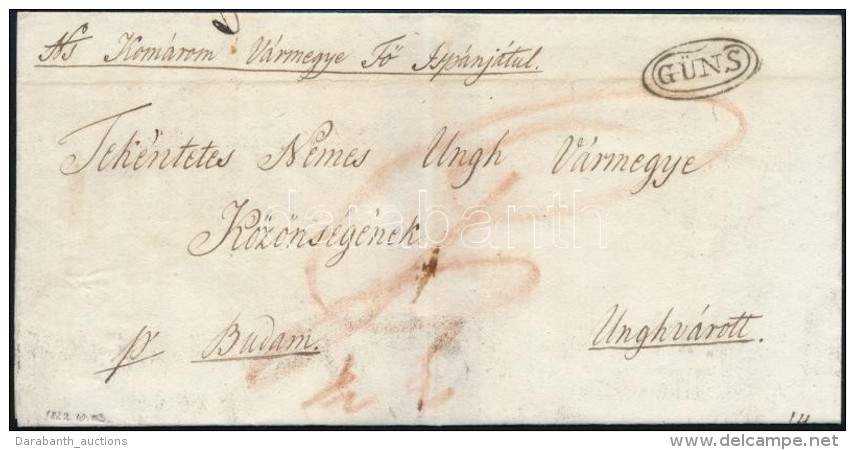 Ns Komárom Vármegye Fő Ispánjátul.
GÜNS
Tekéntetes Nemes Ungh Vármegye
Közönségének
darabanth
pr Budam.
Unghvárott.
1822
14
Darabanth_auctions
delcampe.net